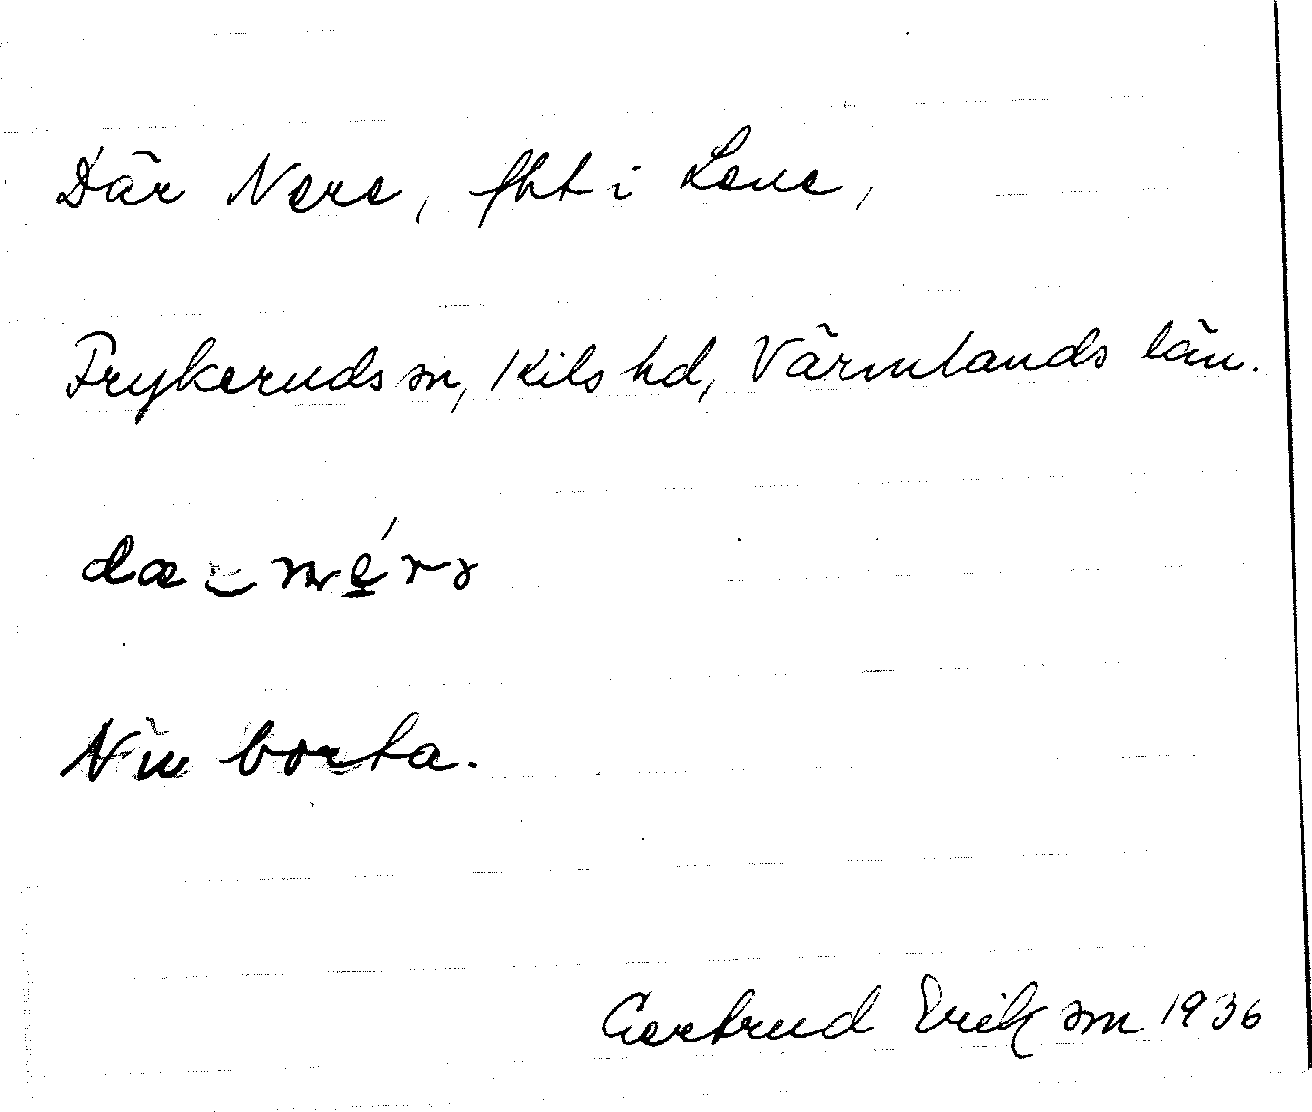 Där Nere, fht i Lene,
Frykeruds sn, Kils hd, Värmlands län.
Nu borta.
Gertrud Eriksson 1936